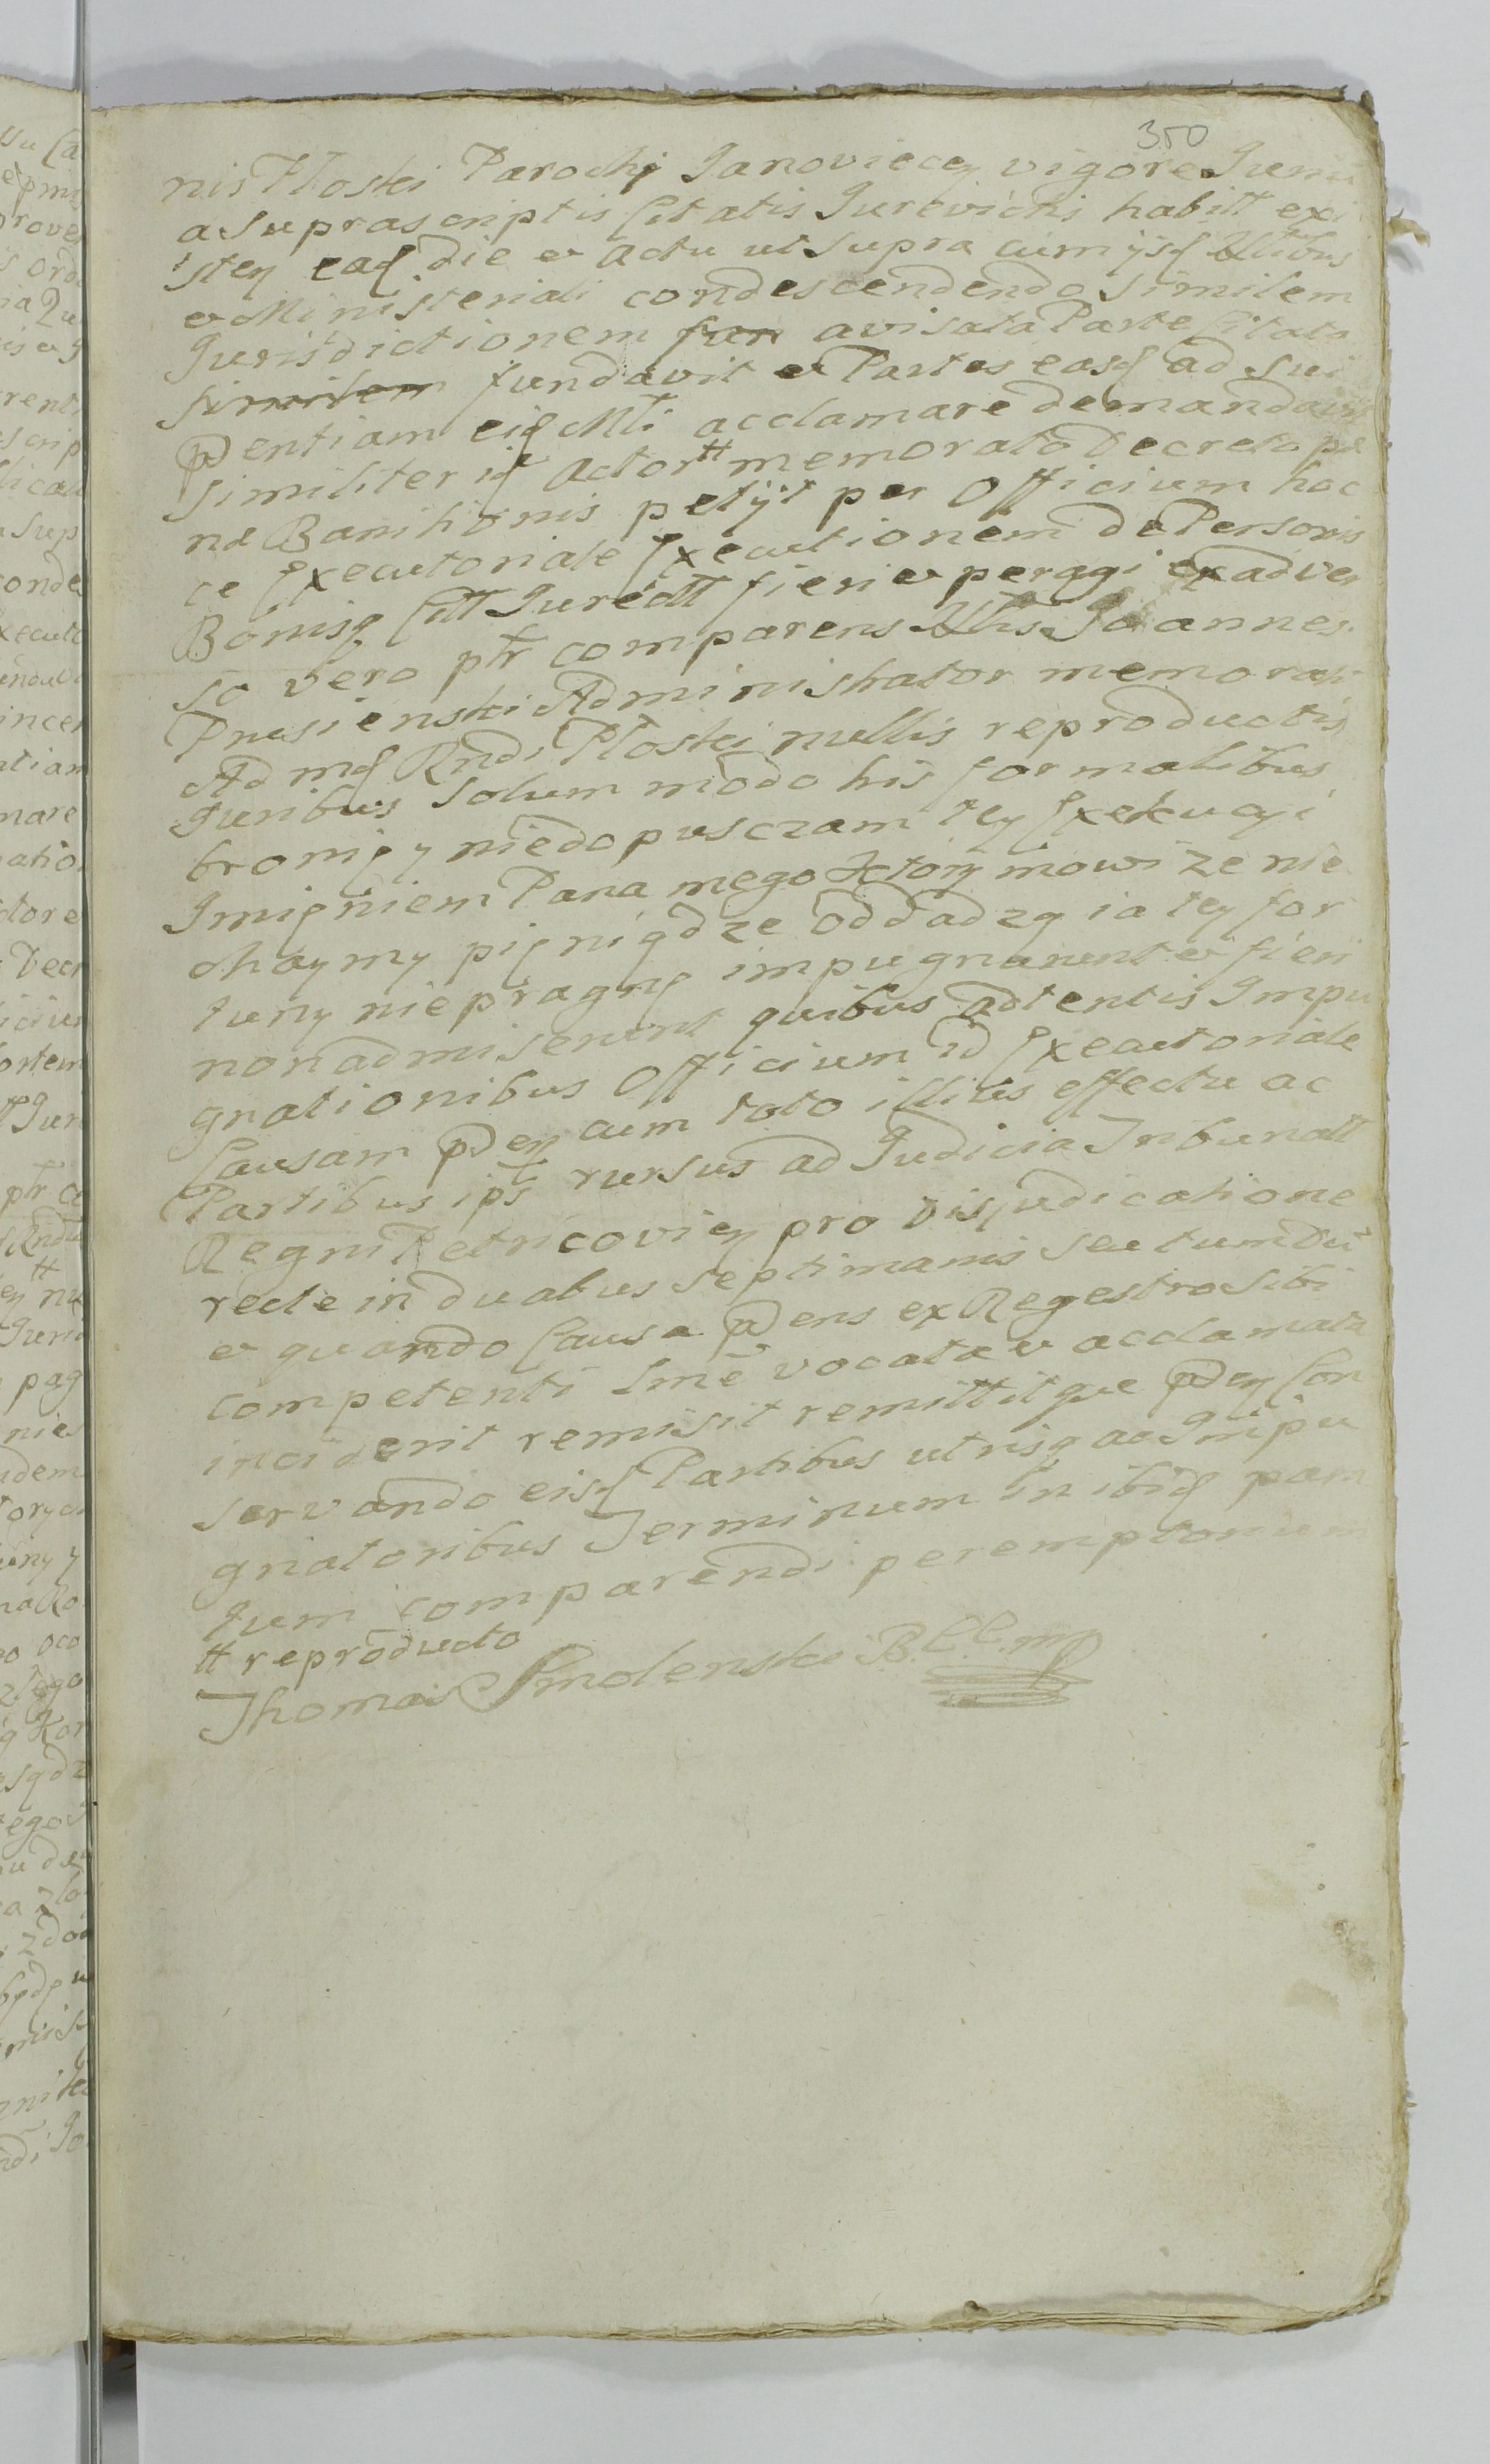 350
nis Płoski Parochi Janoviecen vigore Juriu
a supra scriptis Citatis Jurevictis habitt exi
sten ead die et actu ut supra cum ijsd Nllibus
et Ministeriali condescendendo similem
Jurisdictionem fun avisata Parte Citata
similem fundavit et Partes easd ad sui
pdentiam eid Mli acclamare demandavit
similiter id Actor # memorato Decreto pæ
næ Banitionis petijt per Officium hoc
ce Executoriale Executionem de Personis
Bonisq Citt Jurevictt fieri et peragi ex adver
so vero ptr comparens Nllis Joannes
Prusienski Administrator memorati
Admd Rndi Płoski nullis reproductis
Juribus solum modo his formalibus
bronię y niedopusczam tey Exekucyi
Jmięniem Pana mego Ktory mowi ze nie
chaymy pięniądze oddadzą ia tey for
tuny niepragnę impugnarunt et fieri
non admiserunt quibus adtentis Impu
gnationibus Officium id Executoriale
Causam pden cum toto illius effectu ac
Partibus ips rursus ad Judicia Tribunalt
Regni Petricovien pro disjudicatione
recte in duabus septimanis seu tum dum
et quando Causa pdens ex Regestro sibi
competenti Ime vocata et acclamata
inciderit remisit remittitque pden Con
servando eisd Partibus utrisq ac Impu
gnatoribus Terminum in ibid pam
tum comparendi peremptorium
# reproducto
Thomas Smolenski B. C. C. mp